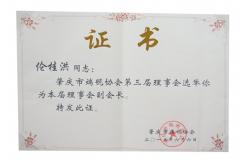 证书
伦桂洪同志：
肇庆市端砚协会第三届理事会选举你
为本届理事会副会长。
特发此证。
肇庆市端砚协会
二〇一五年六月六日